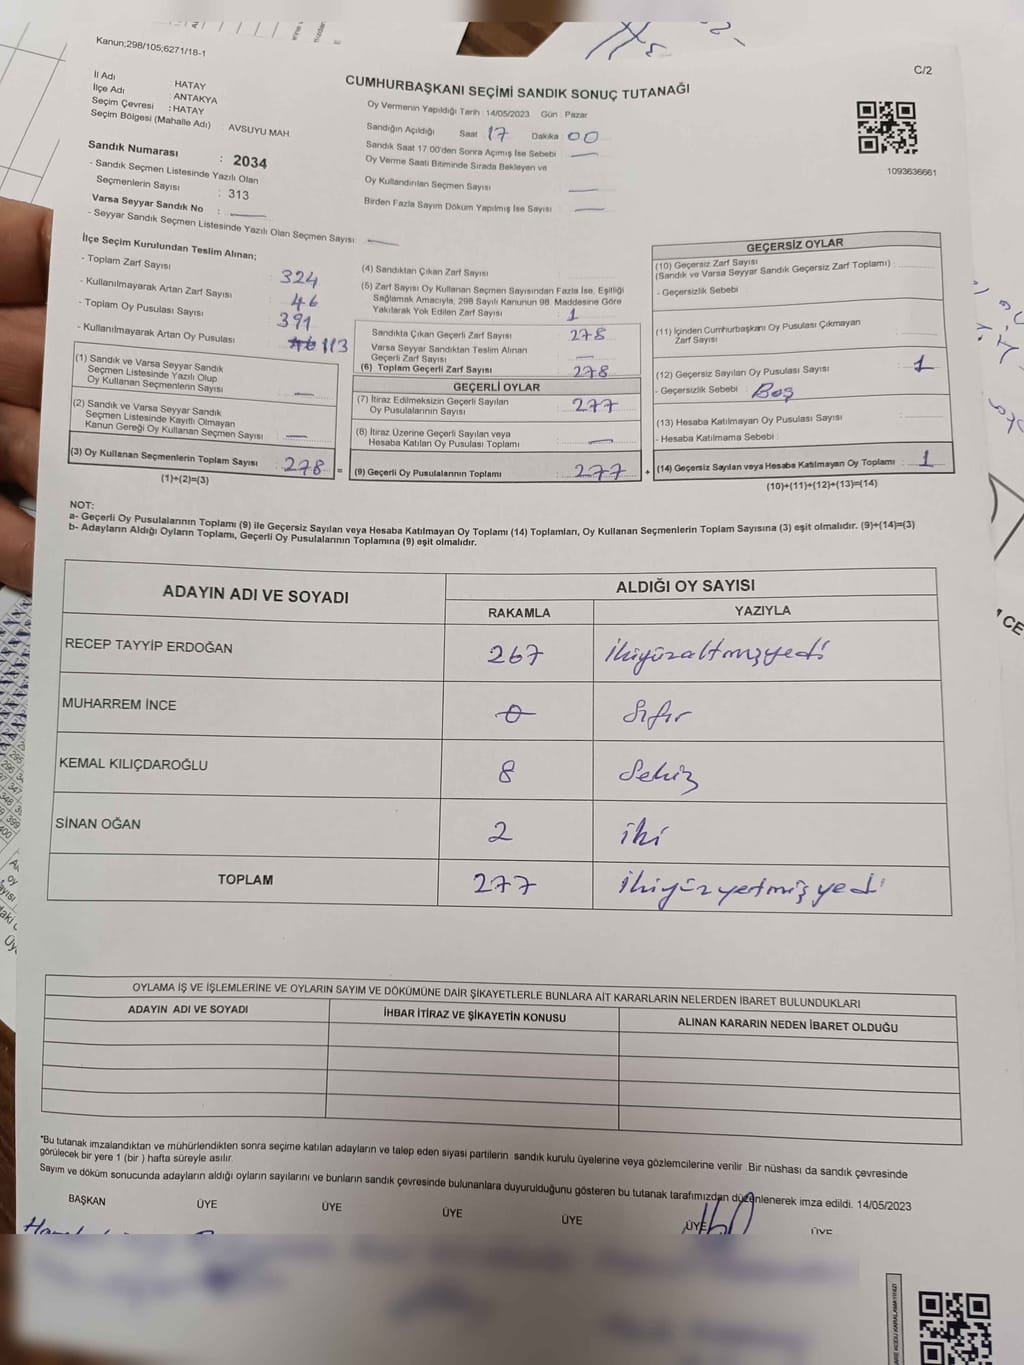 Kanun;298/105;6271/18-1
C/2
CUMHURBAŞKANI SEÇİMİ SANDIK SONUÇ TUTANAĞI
İl Adı : HATAY
İlçe Adı : ANTAKYA
Seçim Çevresi : HATAY
Seçim Bölgesi (Mahalle Adı) : AVSUYU MAH.
Sandık Numarası : 2034
- Sandık Seçmen Listesinde Yazılı Olan
Seçmenlerin Sayısı : 313
Varsa Seyyar Sandık No : —
- Seyyar Sandık Seçmen Listesinde Yazılı Olan Seçmen Sayısı : —
Oy Vermenin Yapıldığı Tarih : 14/05/2023 Gün : Pazar
Sandığın Açıldığı Saat 17 Dakika 00
Sandık Saat 17:00'den Sonra Açımış İse Sebebi —
Oy Verme Saati Bitiminde Sırada Bekleyen ve
Oy Kullandırılan Seçmen Sayısı —
Birden Fazla Sayım Döküm Yapılmış İse Sayısı —
1093636661
İlçe Seçim Kurulundan Teslim Alınan;
- Toplam Zarf Sayısı 324
- Kullanılmayarak Artan Zarf Sayısı 46
- Toplam Oy Pusulası Sayısı 391
- Kullanılmayarak Artan Oy Pusulası 113
(1) Sandık ve Varsa Seyyar Sandık
Seçmen Listesinde Yazılı Olup
Oy Kullanan Seçmenlerin Sayısı : —
(2) Sandık ve Varsa Seyyar Sandık
Seçmen Listesinde Kayıtlı Olmayan
Kanun Gereği Oy Kullanan Seçmen Sayısı : —
(3) Oy Kullanan Seçmenlerin Toplam Sayısı : 278
(1)+(2)=(3)
(4) Sandıktan Çıkan Zarf Sayısı :
(5) Zarf Sayısı Oy Kullanan Seçmen Sayısından Fazla İse, Eşitliği
Sağlamak Amacıyla, 298 Sayılı Kanunun 98. Maddesine Göre
Yakılarak Yok Edilen Zarf Sayısı : 1
Sandıkta Çıkan Geçerli Zarf Sayısı : 278
Varsa Seyyar Sandıktan Teslim Alınan
Geçerli Zarf Sayısı —
(6) Toplam Geçerli Zarf Sayısı : 278
GEÇERLİ OYLAR
(7) İtiraz Edilmeksizin Geçerli Sayılan
Oy Pusulalarının Sayısı : 277
(8) İtiraz Üzerine Geçerli Sayılan veya
Hesaba Katılan Oy Pusulası Toplamı : —
= (9) Geçerli Oy Pusulalarının Toplamı : 277 +
GEÇERSİZ OYLAR
(10) Geçersiz Zarf Sayısı
(Sandık ve Varsa Seyyar Sandık Geçersiz Zarf Toplamı) :
- Geçersizlik Sebebi :
(11) İçinden Cumhurbaşkanı Oy Pusulası Çıkmayan
Zarf Sayısı :
(12) Geçersiz Sayılan Oy Pusulası Sayısı : 1
- Geçersizlik Sebebi : Boş
(13) Hesaba Katılmayan Oy Pusulası Sayısı :
- Hesaba Katılmama Sebebi :
(14) Geçersiz Sayılan veya Hesaba Katılmayan Oy Toplamı : 1
(10)+(11)+(12)+(13)=(14)
NOT:
a- Geçerli Oy Pusulalarının Toplamı (9) ile Geçersiz Sayılan veya Hesaba Katılmayan Oy Toplamı (14) Toplamları, Oy Kullanan Seçmenlerin Toplam Sayısına (3) eşit olmalıdır. (9)+(14)=(3)
b- Adayların Aldığı Oyların Toplamı, Geçerli Oy Pusulalarının Toplamına (9) eşit olmalıdır.
ADAYIN ADI VE SOYADI
ALDIĞI OY SAYISI
RAKAMLA YAZIYLA
RECEP TAYYİP ERDOĞAN 267 ikiyüzaltmışyedi
MUHARREM İNCE 0 Sıfır
KEMAL KILIÇDAROĞLU 8 Sekiz
SİNAN OĞAN 2 iki
TOPLAM 277 ikiyüzyetmişyedi
OYLAMA İŞ VE İŞLEMLERİNE VE OYLARIN SAYIM VE DÖKÜMÜNE DAİR ŞİKAYETLERLE BUNLARA AİT KARARLARIN NELERDEN İBARET BULUNDUKLARI
ADAYIN ADI VE SOYADI İHBAR İTİRAZ VE ŞİKAYETİN KONUSU ALINAN KARARIN NEDEN İBARET OLDUĞU
"Bu tutanak imzalandıktan ve mühürlendikten sonra seçime katılan adayların ve talep eden siyasi partilerin sandık kurulu üyelerine veya gözlemcilerine verilir. Bir nüshası da sandık çevresinde
görülecek bir yere 1 (bir ) hafta süreyle asılır.
Sayım ve döküm sonucunda adayların aldığı oyların sayılarını ve bunların sandık çevresinde bulunanlara duyurulduğunu gösteren bu tutanak tarafımızdan düzenlenerek imza edildi. 14/05/2023
BAŞKAN ÜYE ÜYE ÜYE ÜYE ÜYE ÜYE